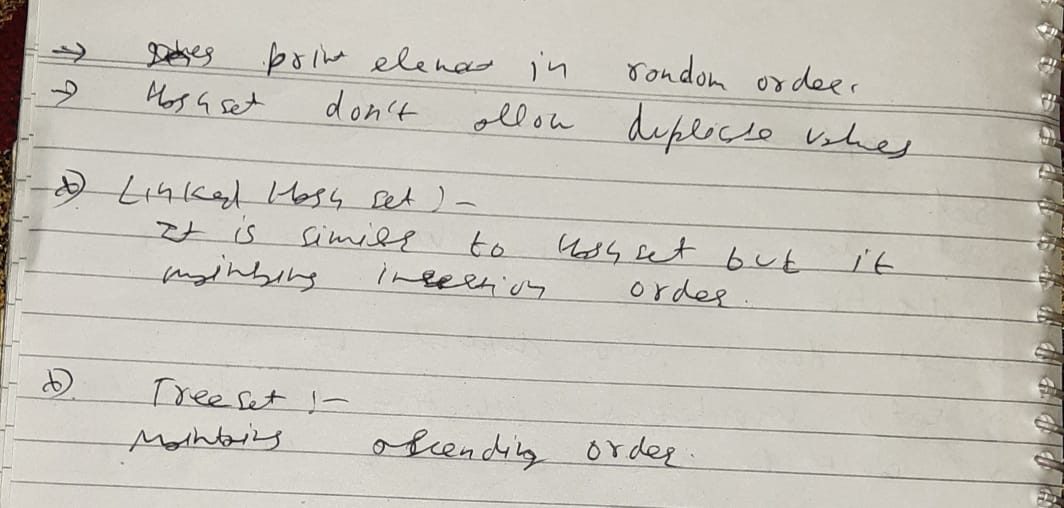 → print element in random order.
→ Hash set don't allow duplicate values
Linked Hash set :-
It is similar to Hash set but it
maintains insertion order.
Tree set :-
Maintains ascending order.